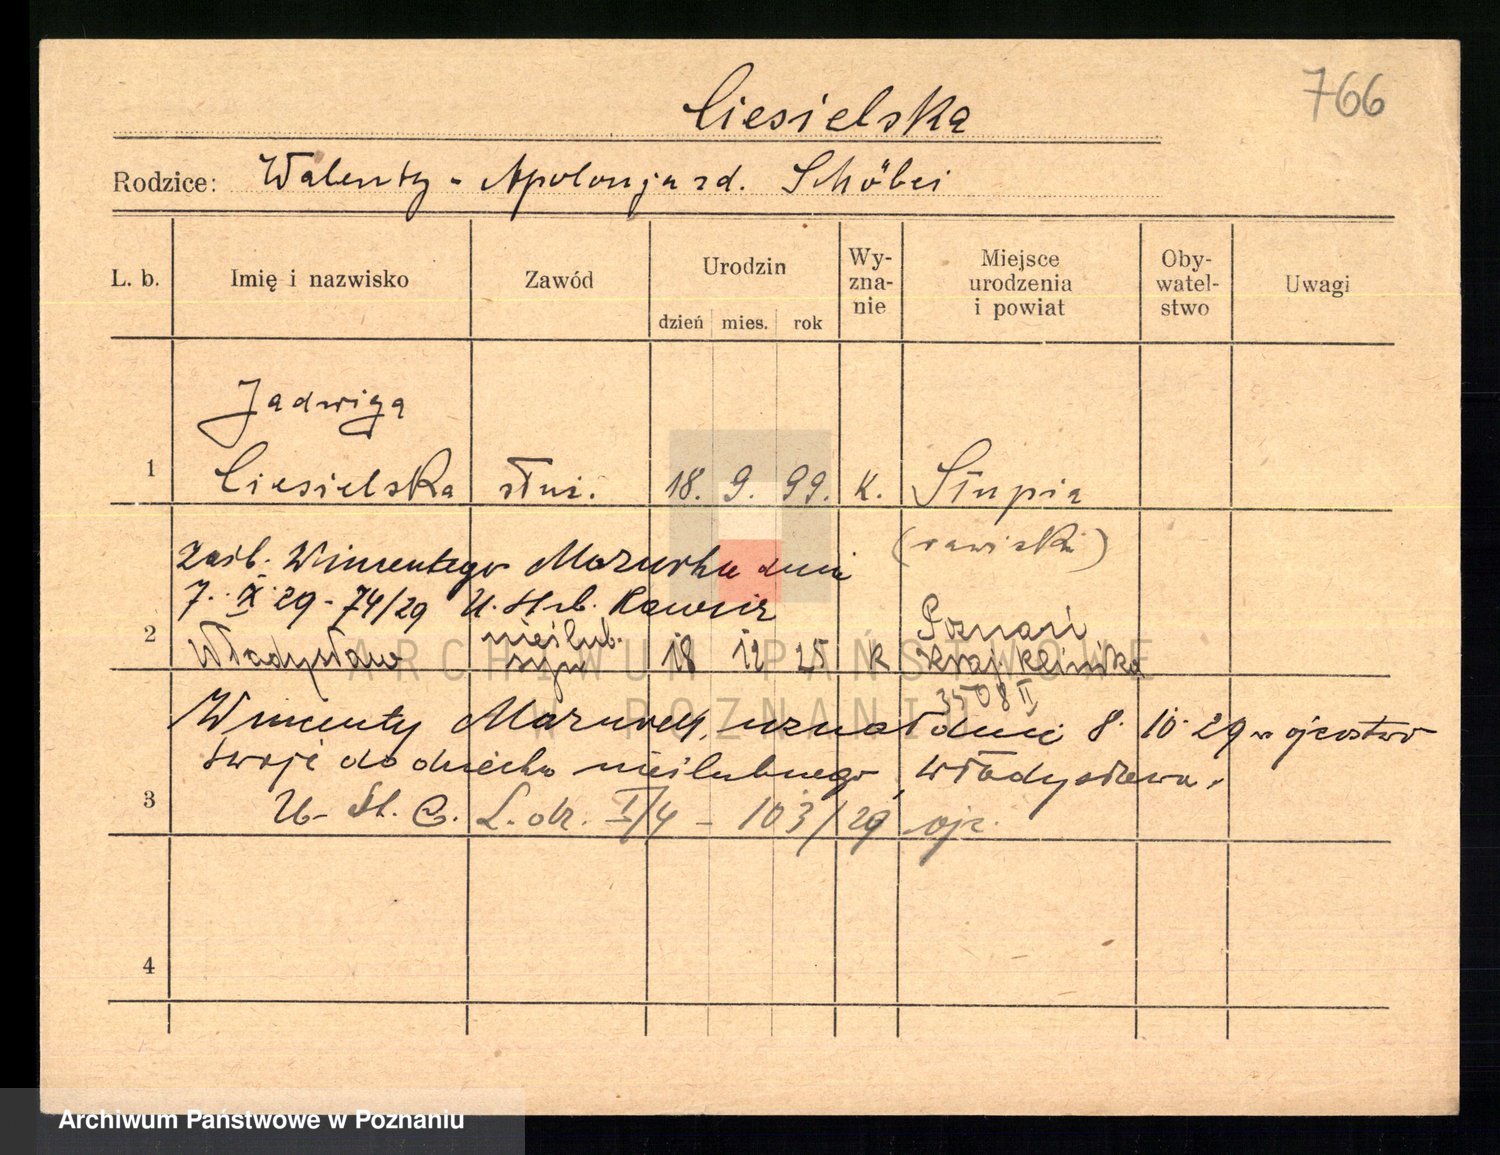 766
Ciesielska
Rodzice: Walenty - Apolonja zd. Schöbei
L. b. Imię i nazwisko Zawód Urodzin dzień mies. rok Wy-zna-nie Miejsce urodzenia i powiat Oby-watel-stwo Uwagi
Jadwiga
1 Ciesielska służ. 18. 9. 99. K. Słupia
(rawicki)
zaśl. Wincentego Mazurka dnia
7. IX 29 - 74/29 U. St. Rawicz
2 Władysław nieślub. syn 18 12 25 K Poznań
Kraj. Klinika
3508 II
Wincenty Mazurek uznał dnia 8. 10. 29 ojcostwo
swoje do dziecka nieślubnego, Władysława.
3 U. St. C. L. dz. I/4 - 103/29 ojc.
4
ARCHIWUM PAŃSTWOWE
W POZNANIU
Archiwum Państwowe w Poznaniu